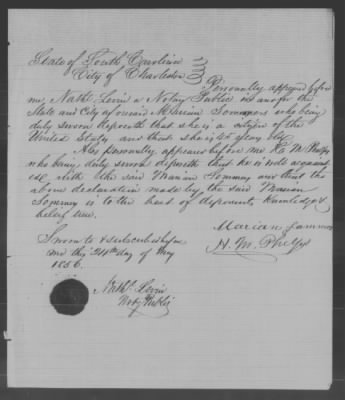 State of South Carolina
City of Charleston
Personally appeared before
me Nathl. Levin a Notary Public in and for the
State and City aforesaid Marian Sommers who being
duly sworn deposeth that she is a citizen of the
United States and that she is years old
Also personally appeared before me H. M. Phelps
who being duly sworn deposeth that he is well acquaint
ed with the said Marian Sommers and that the
above declaration made by the said Marian
Sommers is to the best of deponents knowledge &
belief true.
Marian Sommers
H. M. Phelps
Sworn to & subscribed before
me this 24th day of May
1856.
Nathl. Levin
Noty Public